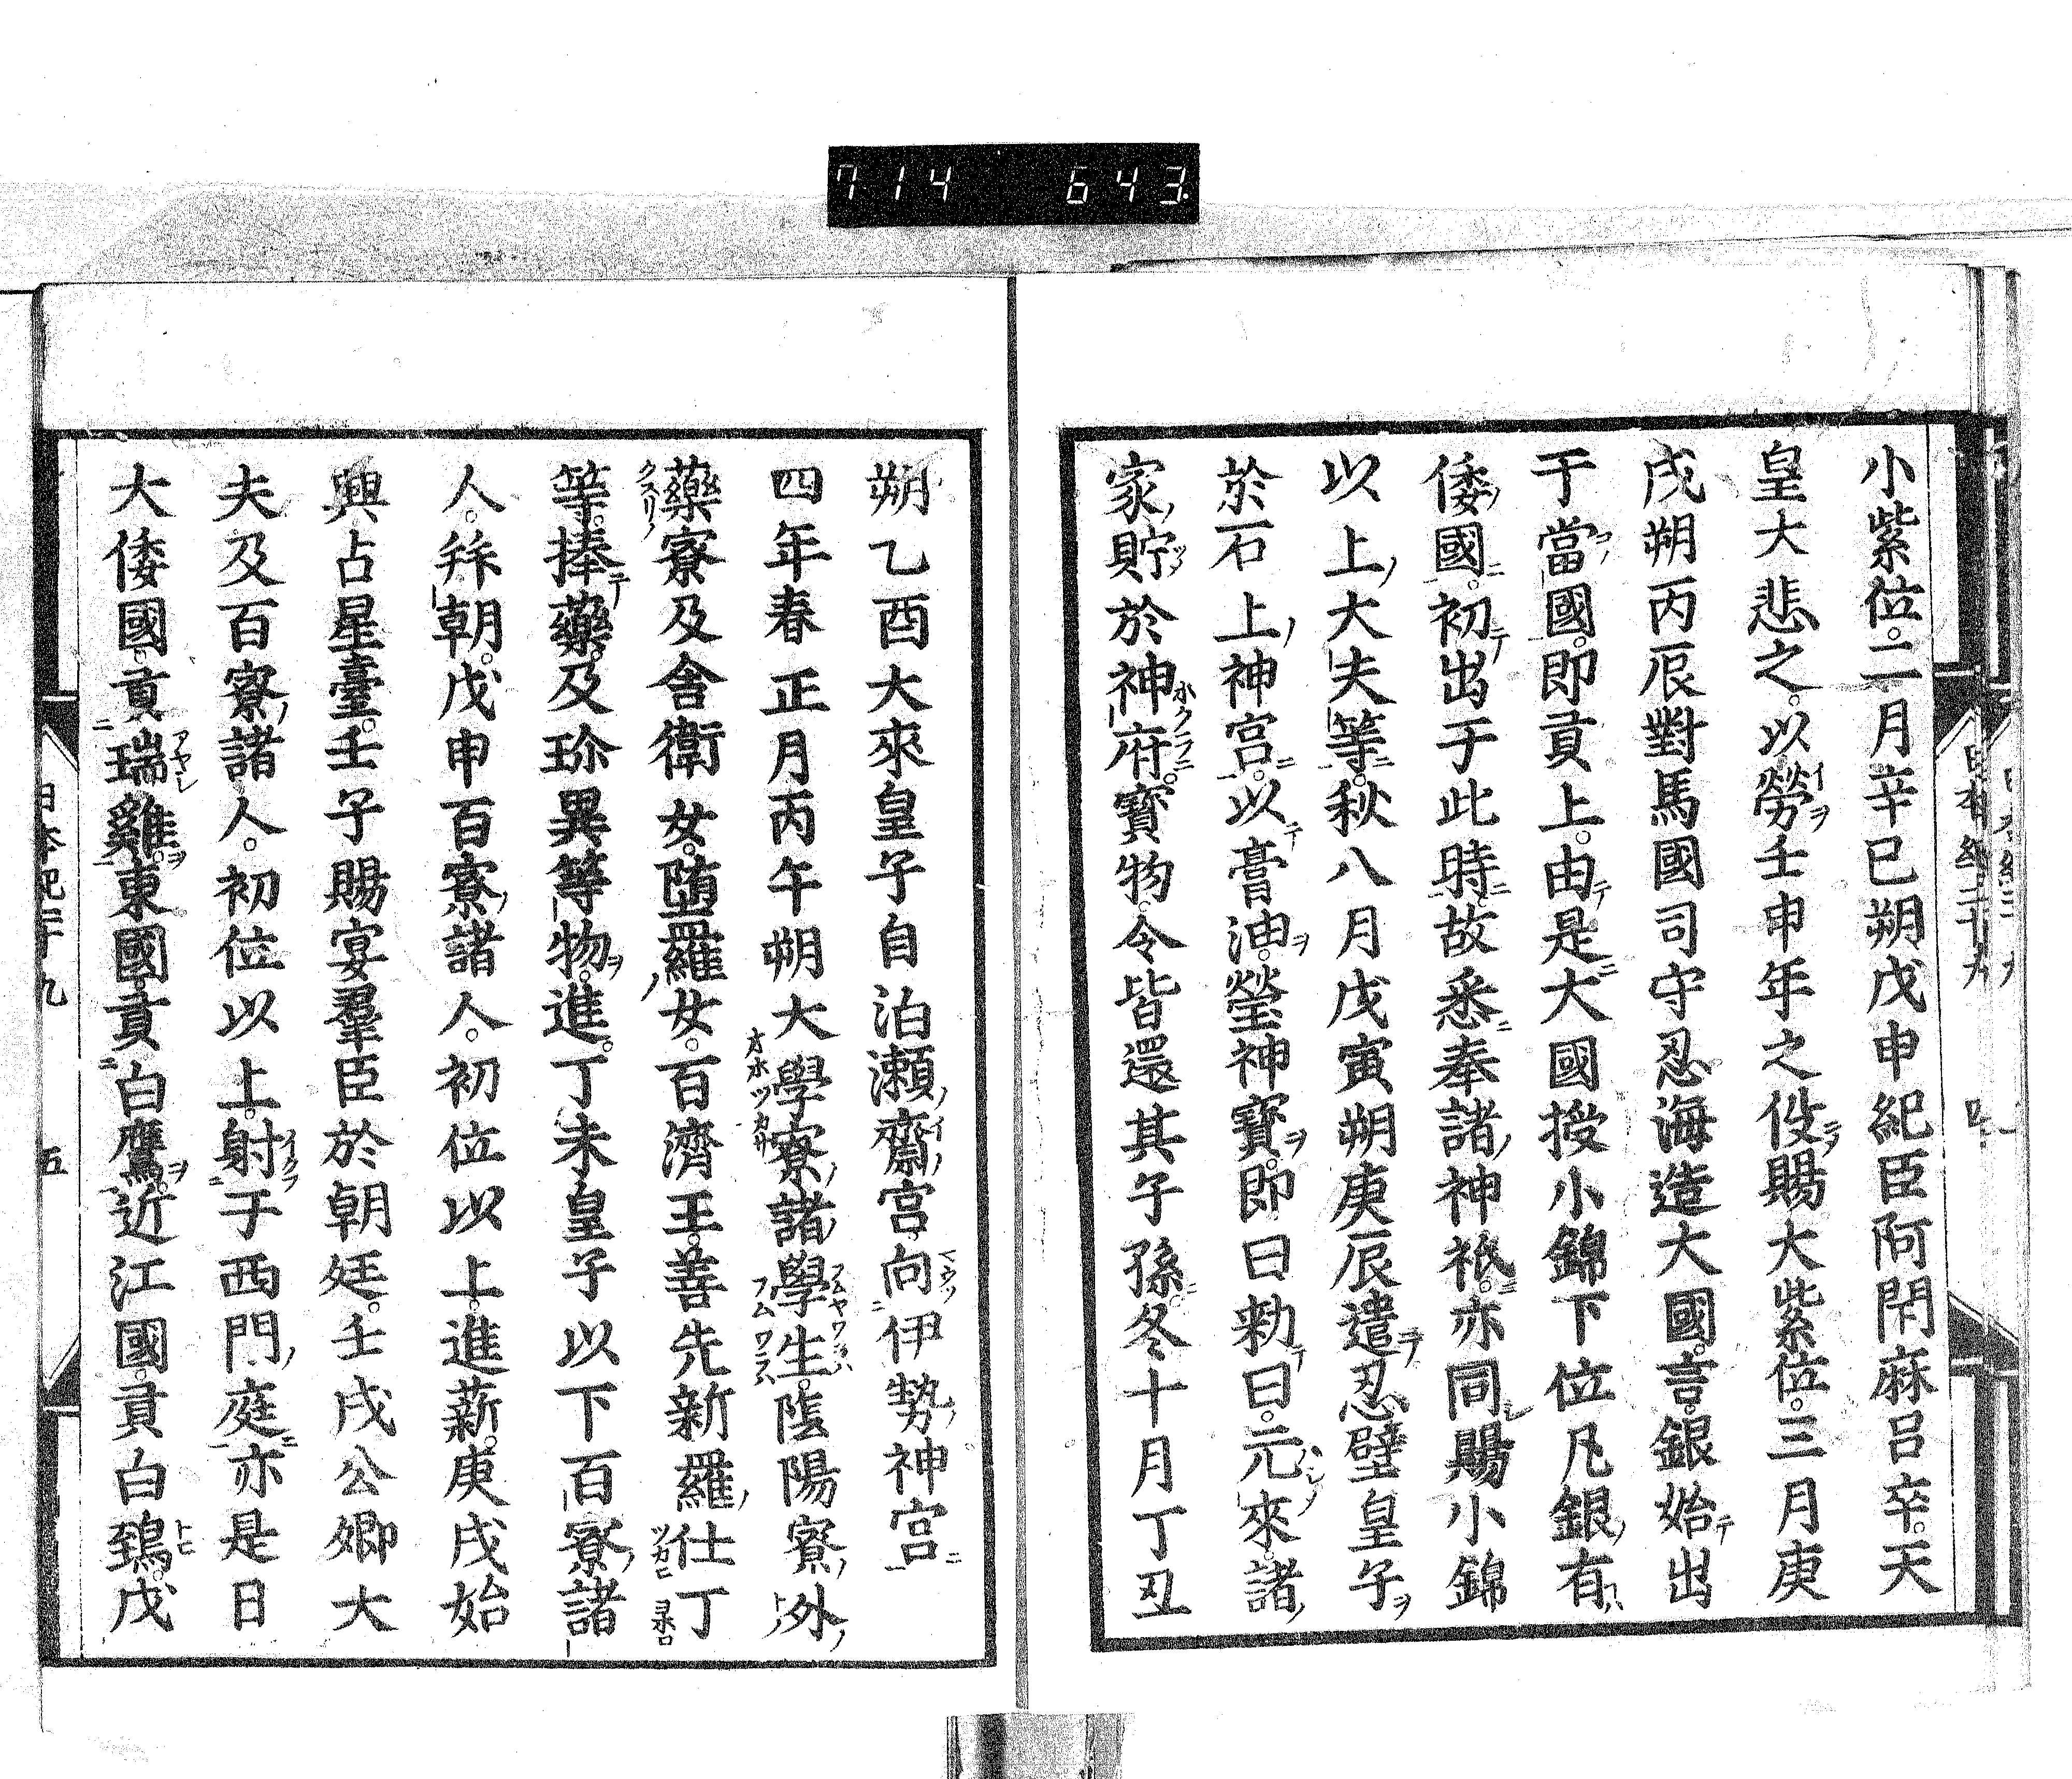 714 643
小紫位。二月辛巳朔戊申紀臣阿閇麻呂卒。天
皇大悲之。以勞壬申年之役賜大紫位。三月庚
戌朔丙辰對馬國司守忍海造大國。言。銀始出
于當國。即貢上。由是大國授小錦下位凡銀有
倭國。初出于此時。故悉奉諸神祇。亦同賜小錦
以上大夫等。秋八月戊寅朔庚辰遣忍壁皇子
於石上神宮。以膏油。瑩神寶。即日勅曰。元來。諸
家貯於神府。寶物。令皆還其子孫。冬十月丁丑
朔乙酉大來皇子自泊瀬齋宮。向伊勢神宮
四年春正月丙午朔大學寮諸學生。陰陽寮外
藥寮及舍衛女。墮羅女。百濟王。善先新羅仕丁
等。捧藥。及珍異等物。進。丁未皇子以下百寮諸
人。拜朝。戊申百寮諸人。初位以上。進薪。庚戌始
興占星臺。壬子賜宴羣臣於朝廷。壬戌公卿大
夫及百寮諸人。初位以上。射于西門庭亦是日
大倭國。貢瑞雞。東國。貢白鷹。近江國。貢白鵄。戊
日本紀二十九 五